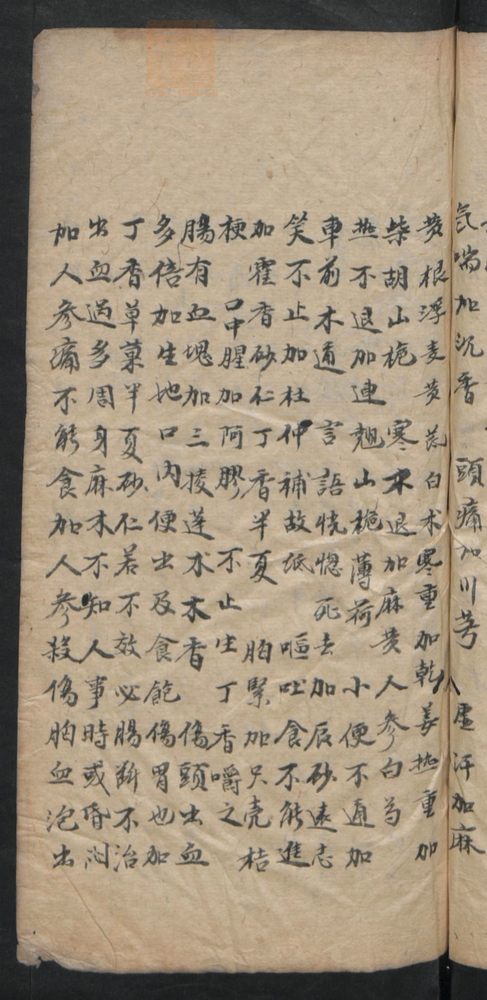 氣喘加沉香 頭痛加川芎 虛汗加麻
黄根浮麦黄芪白术寒重加乾姜热重加
柴胡山栀 寒不退加麻黄人參白芍
热不退加連翹山栀薄荷 小便不通加
車前木通 言語恍惚死去加辰砂遠志
笑不止加杜仲補故纸 嘔吐食不能進
加霍香砂仁丁香半夏 胸緊加只壳桔
梗 口中腥加阿膠 不止生丁香嚼之
腸有血塊加三棱莲木木香 傷頭出血
多倍加生地口内便出及食飽傷胃也加
丁香草菓半夏砂仁若不效必腸断不治
出血過多周身麻木不知人事時或昏闷
加人參痛不能食加人參殺傷胸血泡出